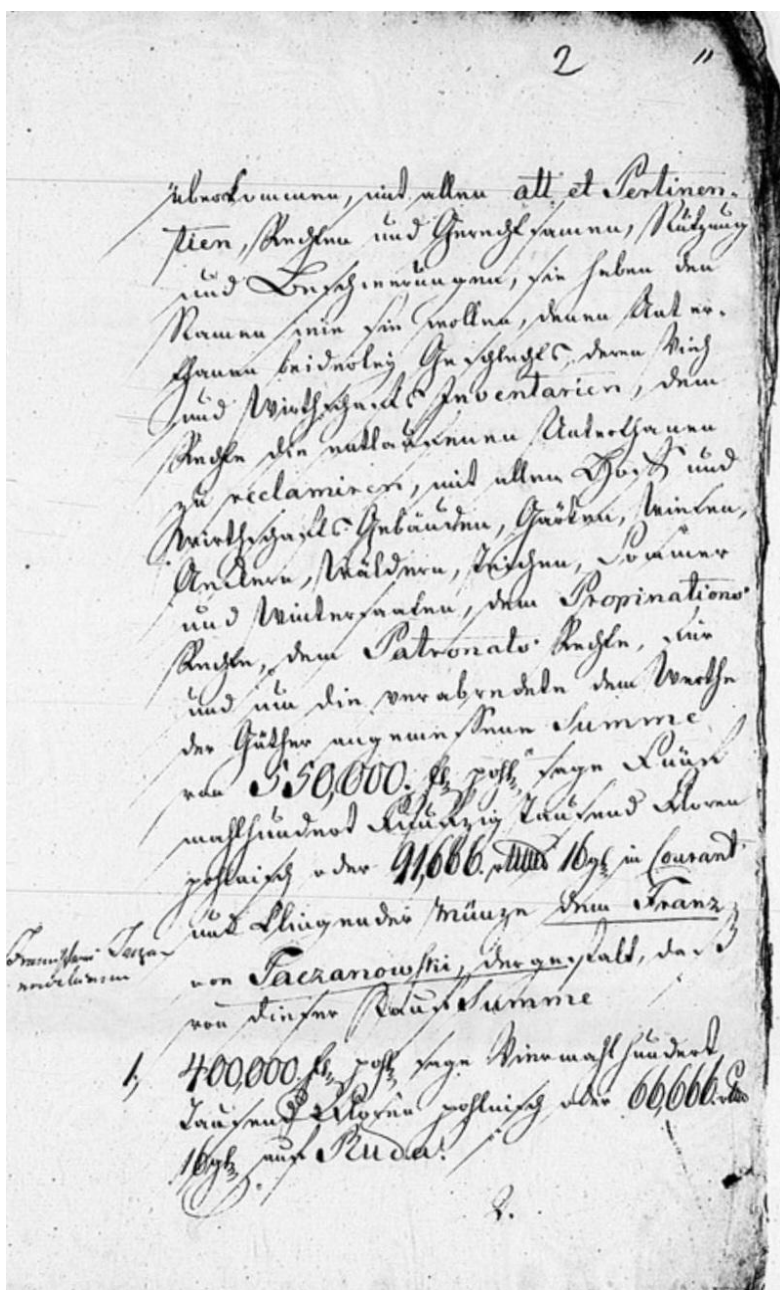 2 "
überkommen, mit allen att et Pertinen-
tien, Rechten und Gerechtsamen, Nutzung
und Beschwerungen, sie haben den
Namen wie sie wollen, denen Unter-
thanen beiderley Geschlechts, deren Vieh
und Wirthschafts Inventarien, dem
Rechte die entlaufenen Unterthanen
zu reclamiren, mit allen Hof und
Wirthschafts Gebäuden, Gärten, Wiesen,
Aeckern, Wäldern, Teichen, Sommer
und Wintersaaten, dem Propinations
Rechte, dem Patronats Rechte, für
und um die verabredete dem Werthe
der Güther angemessene Summe
von 550,000. fl. pohl. sage Fünf
mahlhundert Funfzig Tausend Floren
pohlnisch oder 91,666. rthlr 16 gl. in Courant
und klingender Münze dem Franz
von Taczanowski, dergestalt, daß
von dieser Kauf Summe
1, 400,000 fl. pohl. sage Viermahl hundert
Tausend Floren pohlnisch oder 66,666. rthlr
16 gl. auf Ruda.
2.